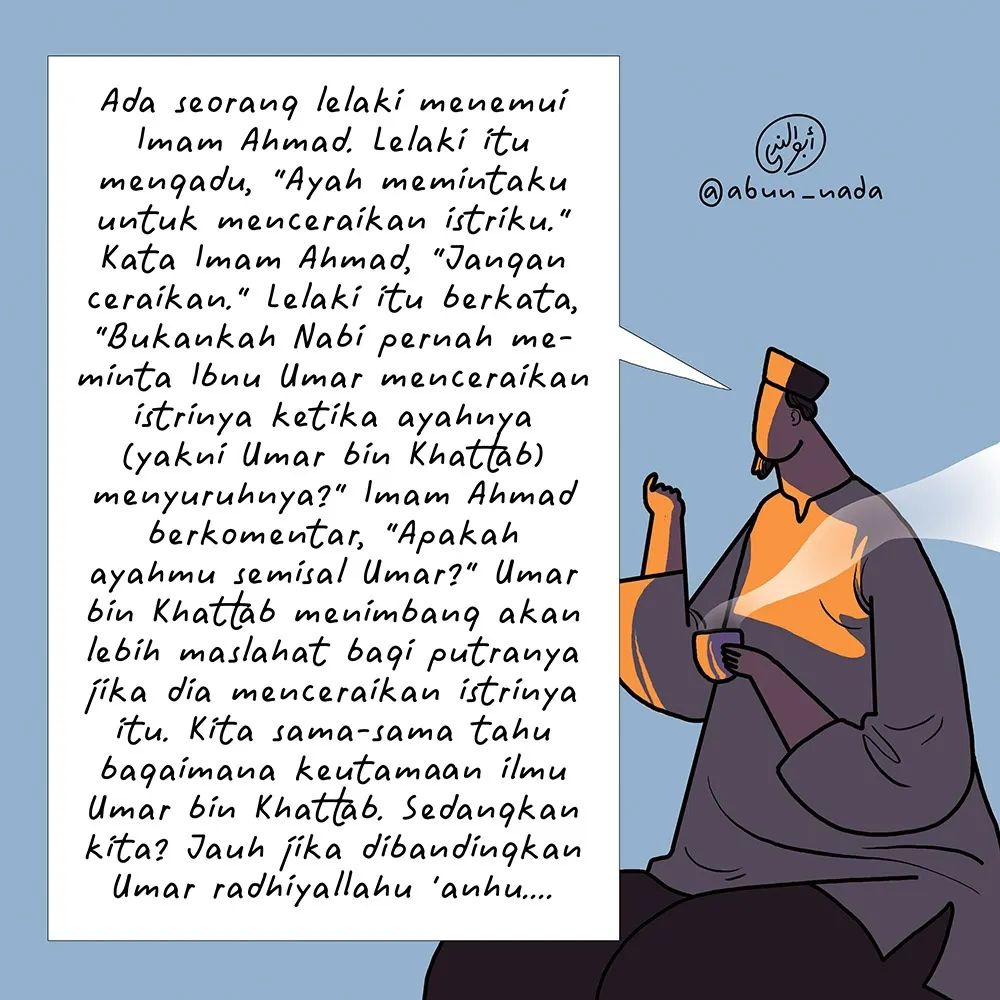 Ada seorang lelaki menemui
Imam Ahmad. Lelaki itu
mengadu, "Ayah memintaku
untuk menceraikan istriku."
Kata Imam Ahmad, "Jangan
ceraikan." Lelaki itu berkata,
"Bukankah Nabi pernah me-
minta Ibnu Umar menceraikan
istrinya ketika ayahnya
(yakni Umar bin Khattab)
menyuruhnya?" Imam Ahmad
berkomentar, "Apakah
ayahmu semisal Umar?" Umar
bin Khattab menimbang akan
lebih maslahat bagi putranya
jika dia menceraikan istrinya
itu. Kita sama-sama tahu
bagaimana keutamaan ilmu
Umar bin Khattab. Sedangkan
kita? Jauh jika dibandingkan
Umar radhiyallahu 'anhu....
أبو الندى
@abun_nada